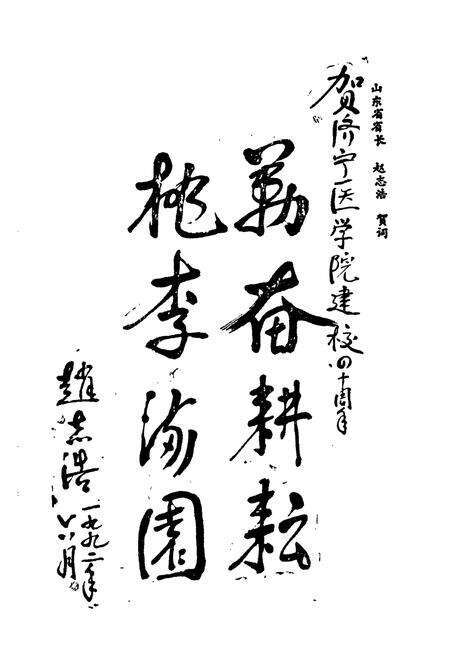 山东省省长 赵志浩 贺词
贺济宁医学院建校四十周年
勤奋耕耘
桃李满園
趙志浩 一九九二年
八月